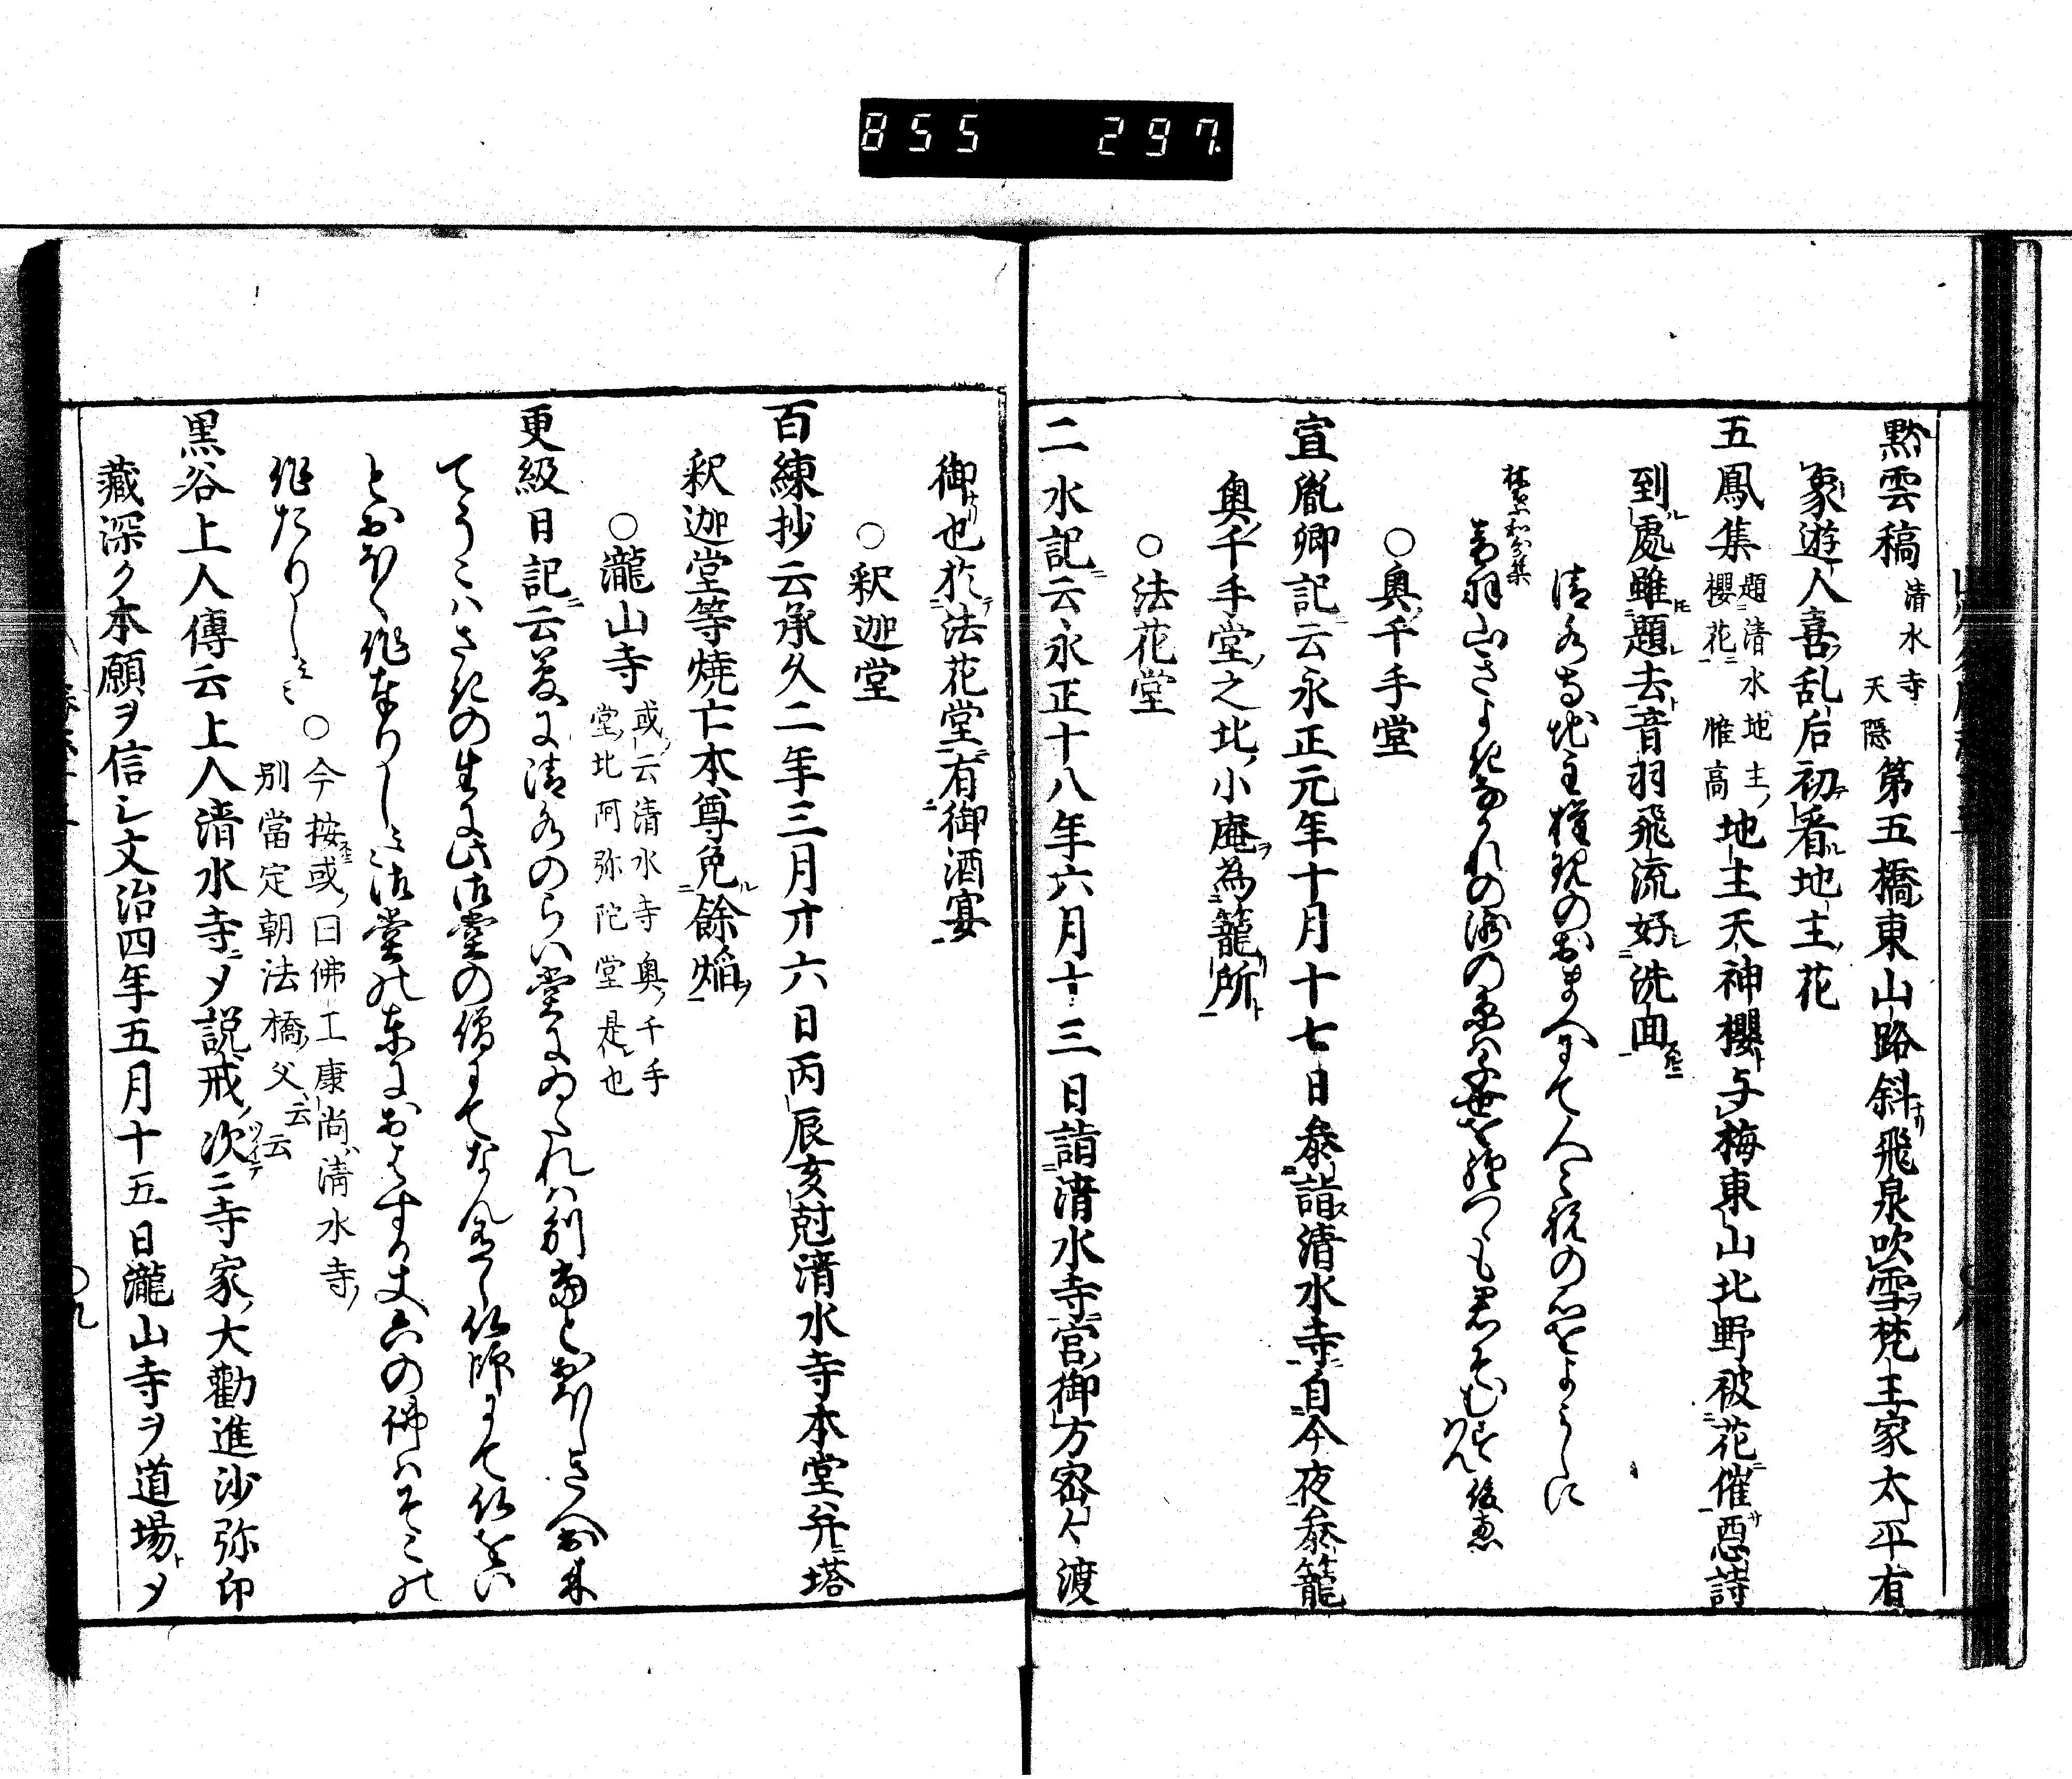 855 297
黙雲稿 清水寺 天隠 第五橋東山路斜飛泉吹雪梵王家太平有
象遊人喜乱后初看地主花
五鳳集 題清水地主櫻花 惟高 地主天神櫻与梅東山北野被花催惡詩
到處雖題去音羽飛流好洗面
清水寺地主権現のおまへにて人〻祝の心をようしに
音羽山さよ
○奥千手堂
宣胤卿記云永正元年十月十七日参詣清水寺自今夜参籠
奥千手堂之北小庵為籠所
○法花堂
二水記云永正十八年六月十三日詣清水寺宮御方密々渡
御也於法花堂有御酒宴
○釈迦堂
百練抄云承久二年三月廿六日丙辰亥尅清水寺本堂并塔
釈迦堂等焼亡本尊免餘焔
○瀧山寺 或云清水寺奥千手堂北阿弥陀堂是也
更級日記云夢に清水のらい堂にゐたれハ別當とおほしき人出来
てそこハさきの生に此御堂の僧にてなん有し仏師にて仏をい
とおほく作奉りし〻御堂の東におはする丈六の佛ハそこの
作たりし〻〻 ○今按或曰佛工康尚清水寺別當定朝法橋父云云
黒谷上人傳云上人清水寺ニメ説戒ノ次ニ寺家大勸進沙弥印
藏深ク本願ヲ信シ文治四年五月十五日瀧山寺ヲ道場トメ